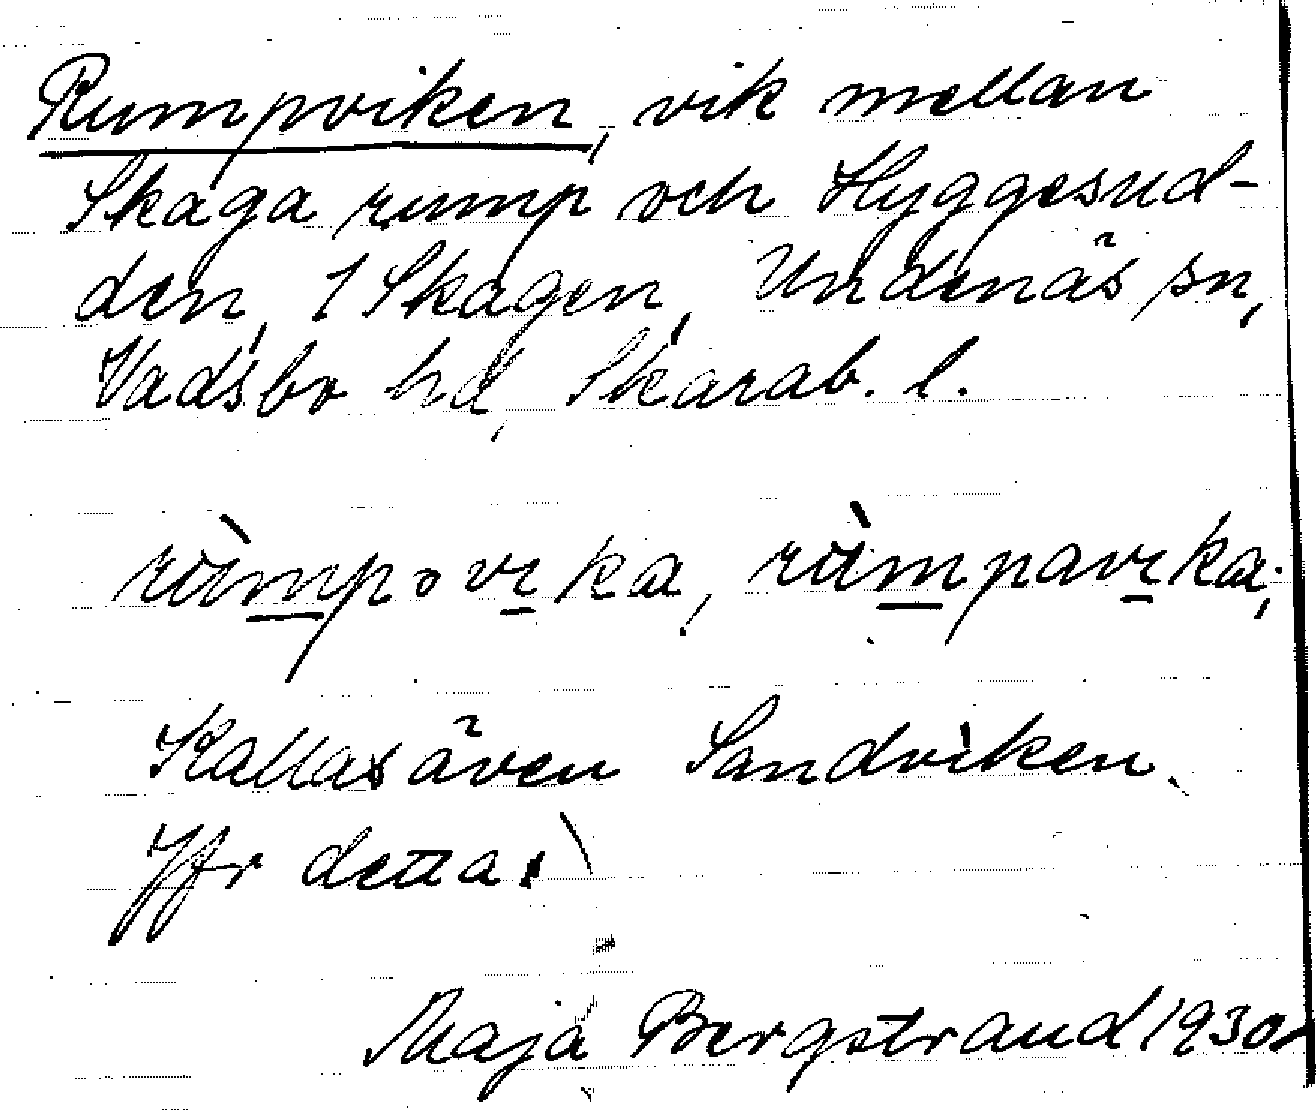 Rumpviken, vik mellan
Skaga rump och Hyggesud-
den, 1 Skagen, Undenäs sn,
Vadsbo hd, Skarab. l.
rùmpovıka, rùmpavıka;
Kallas även Sandviken.
Jfr detta.
Maja Bergstrand 1930